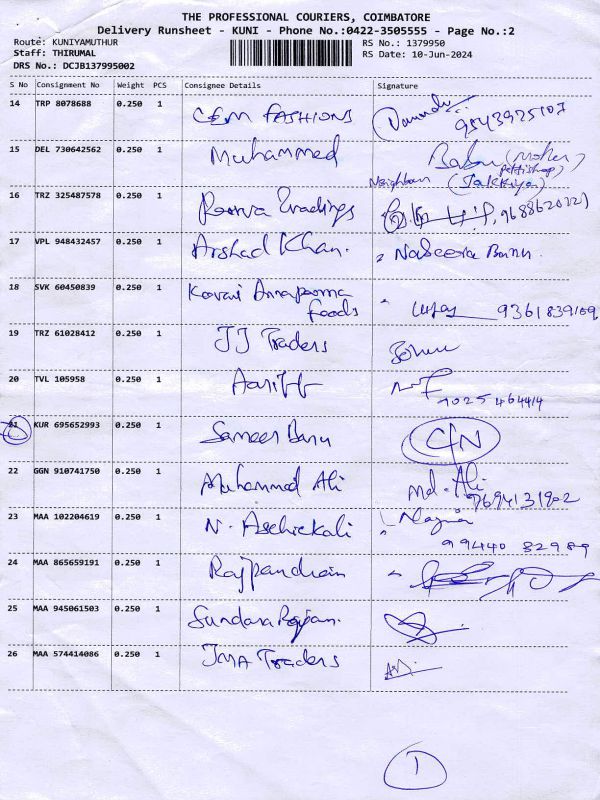 THE PROFESSIONAL COURIERS, COIMBATORE
Delivery Runsheet - KUNI - Phone No.:0422-3505555 - Page No.:2
Route: KUNIYAMUTHUR RS No.: 1379950
Staff: THIRUMAL RS Date: 10-Jun-2024
DRS No.: DCJB137995002
S No Consignment No Weight PCS Consignee Details Signature
14 TRP 8078688 0.250 1 CEM FASHIONS 9843925107
15 DEL 730642562 0.250 1 Muhammed Babu (Mother
Neighbour
16 TRZ 325487578 0.250 1 Tradings
17 VPL 948432457 0.250 1 Arshad Khan. Naseera Banu
18 SVK 60450839 0.250 1 Kovai Annapoorna
foods 9361839109
19 TRZ 61028412 0.250 1 JJ Traders
20 TVL 105958 0.250 1 Aariff
7025464414
21 KUR 695652993 0.250 1 Sameer Banu C/N
22 GGN 910741750 0.250 1 Muhammed Ali Md. Ali
9694131902
23 MAA 102204619 0.250 1 N. Aschickali
99440 82989
24 MAA 865659191 0.250 1 Rajpandian
25 MAA 945061503 0.250 1 Sundara Rajan.
26 MAA 574414086 0.250 1 JMA Traders
1